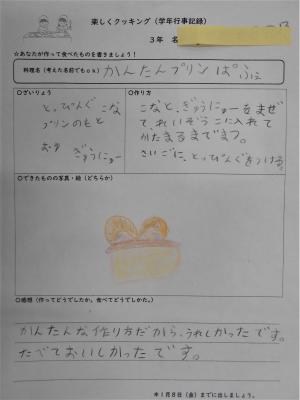 楽しくクッキング（学年行事記録）
3年 名
☆あなたが作って食べたものを書きましょう！
料理名（考えた名前でもok）かんたんプリンぱふぇ
○ざいりょう
とっぴんぐ こな
プリンのもと
おゆ ぎゅうにゅー
○作り方
こなと、ぎゅうにゅーをまぜ
て、れいぞうこに入れて
かたまるまでまつ。
さいごに、とっぴんぐをつける。
○できたものの写真・絵（どちらか）
○感想（作ってどうでしたか。食べてどうでしたか。）
かんたんな作り方だから、うれしかったです。
たべておいしかったです。
＊1月8日（金）までに出しましょう。